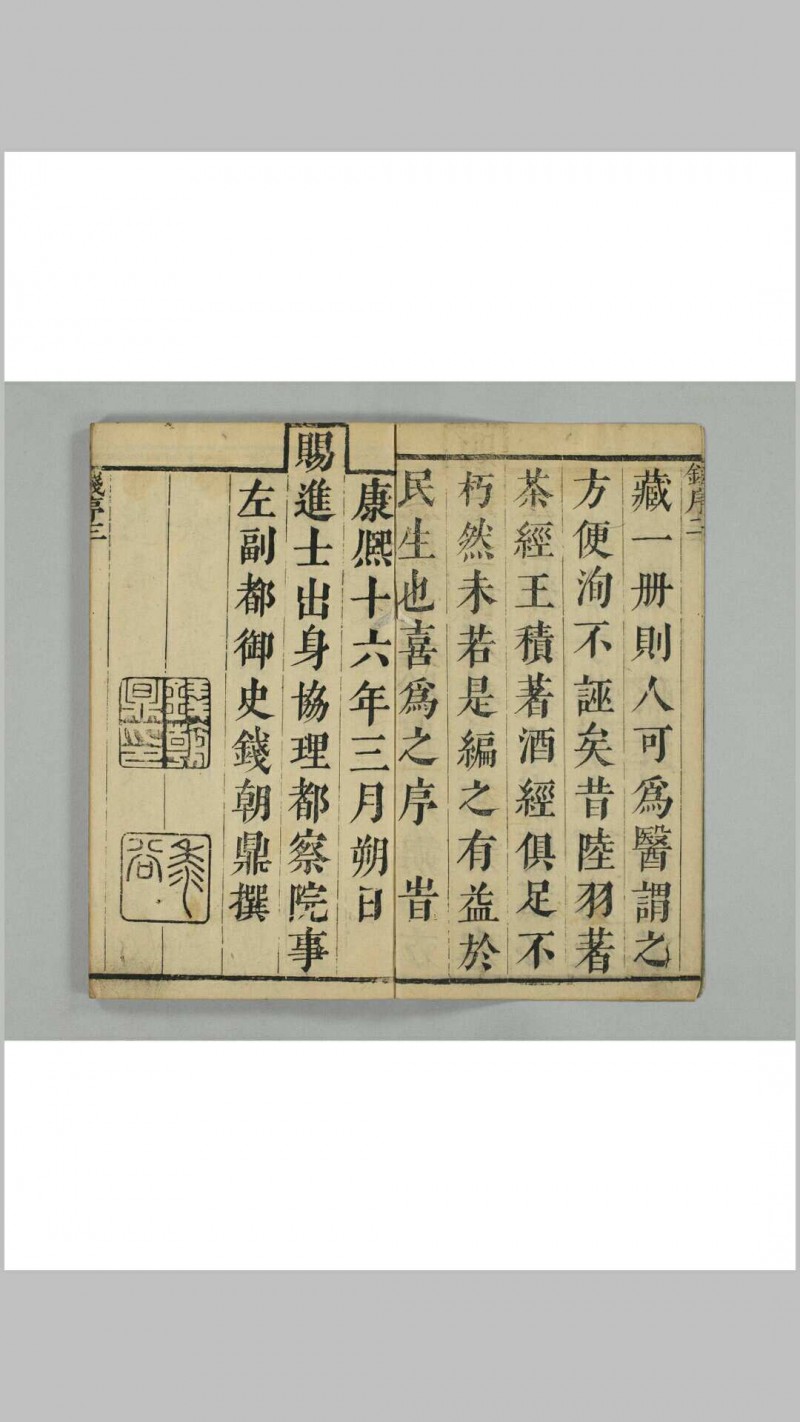 錢序二
藏一册則人可爲醫謂之
方便洵不誣矣昔陸羽著
茶經王積著酒經俱足不
朽然未若是編之有益於
民生也喜爲之序　旹
康熙十六年三月朔日
賜進士出身協理都察院事
左副都御史錢朝鼎撰
錢朝鼎印
黍谷
錢序三